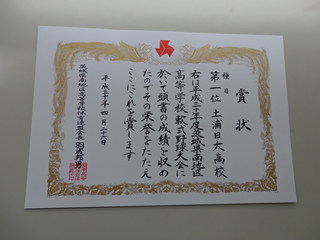 賞状
種目
第一位 土浦日大高校
右は平成三十年度茨城県南地区
高等学校軟式野球大会に
於いて頭書の成績を収め
たのでその栄誉をたたえ
ここにこれを賞します
平成三十年四月二十六日
茨城県南地区高等学校体育連盟会長